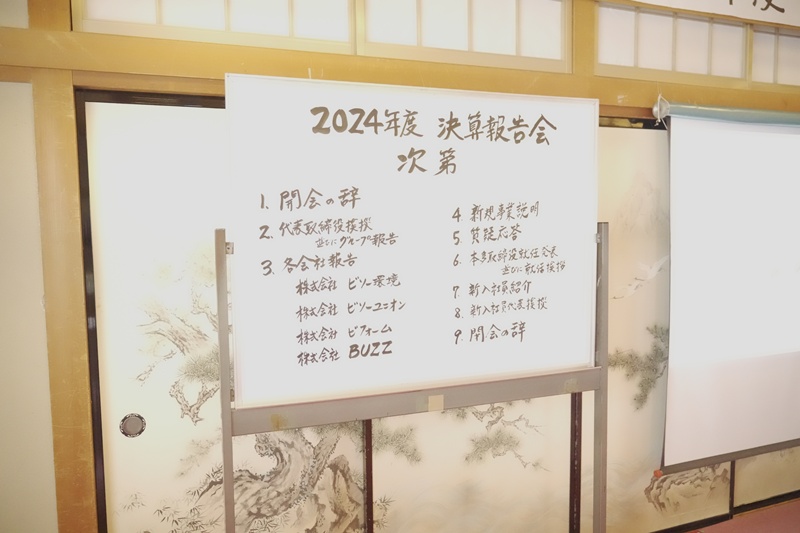 2024年度 決算報告会
次第
1. 開会の辞
2. 代表取締役挨拶
並びにグループ報告
3. 各会社報告
株式会社 ビソー環境
株式会社 ビソーユニオン
株式会社 ビフォーム
株式会社 BUZZ
4 新規事業説明
5. 質疑応答
6. 本多取締役就任発表
並びに就活挨拶
7 新入社員紹介
8. 新入社員代表挨拶
9. 閉会の辞
度